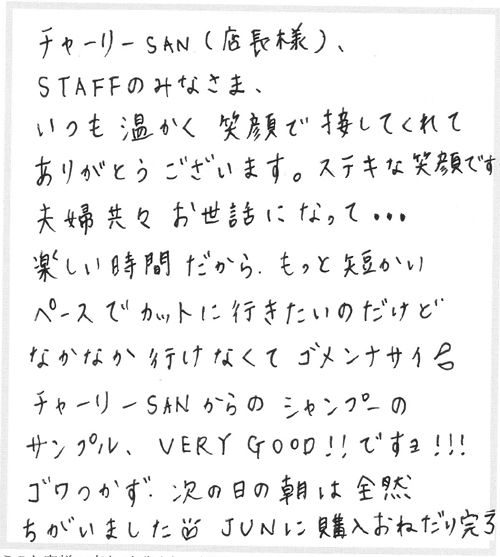 チャーリーSAN（店長様）、
STAFFのみなさま、
いつも温かく笑顔で接してくれて
ありがとうございます。ステキな笑顔です
夫婦共々お世話になって・・・
楽しい時間だから、もっと短かい
ペースでカットに行きたいのだけど
なかなか行けなくてゴメンナサイ
チャーリーSANからのシャンプーの
サンプル、VERY GOOD!!ですョ!!!
ゴワつかず、次の日の朝は全然
ちがいました JUNに購入おねだり完了